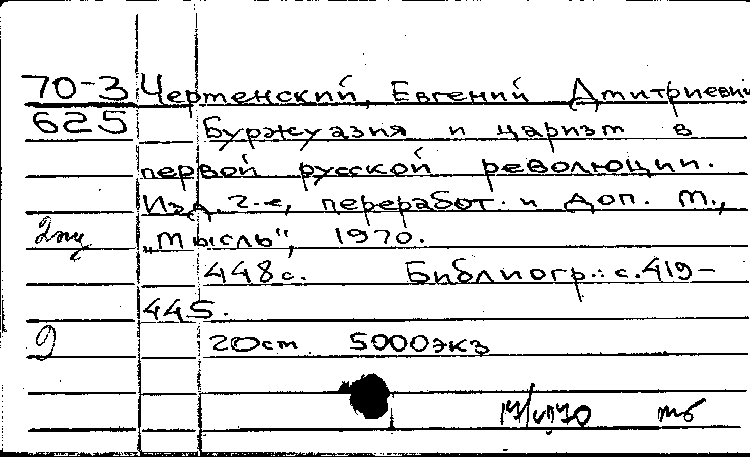 70-3 Чертенский, Евгений Дмитриевич
625 Буржуазия и царизм в
первой русской революции.
Изд. 2-е, переработ. и доп. М.,
2экз „Мысль", 1970.
448с. Библиогр.: с.419-
445.
9 20см 5000экз
тб